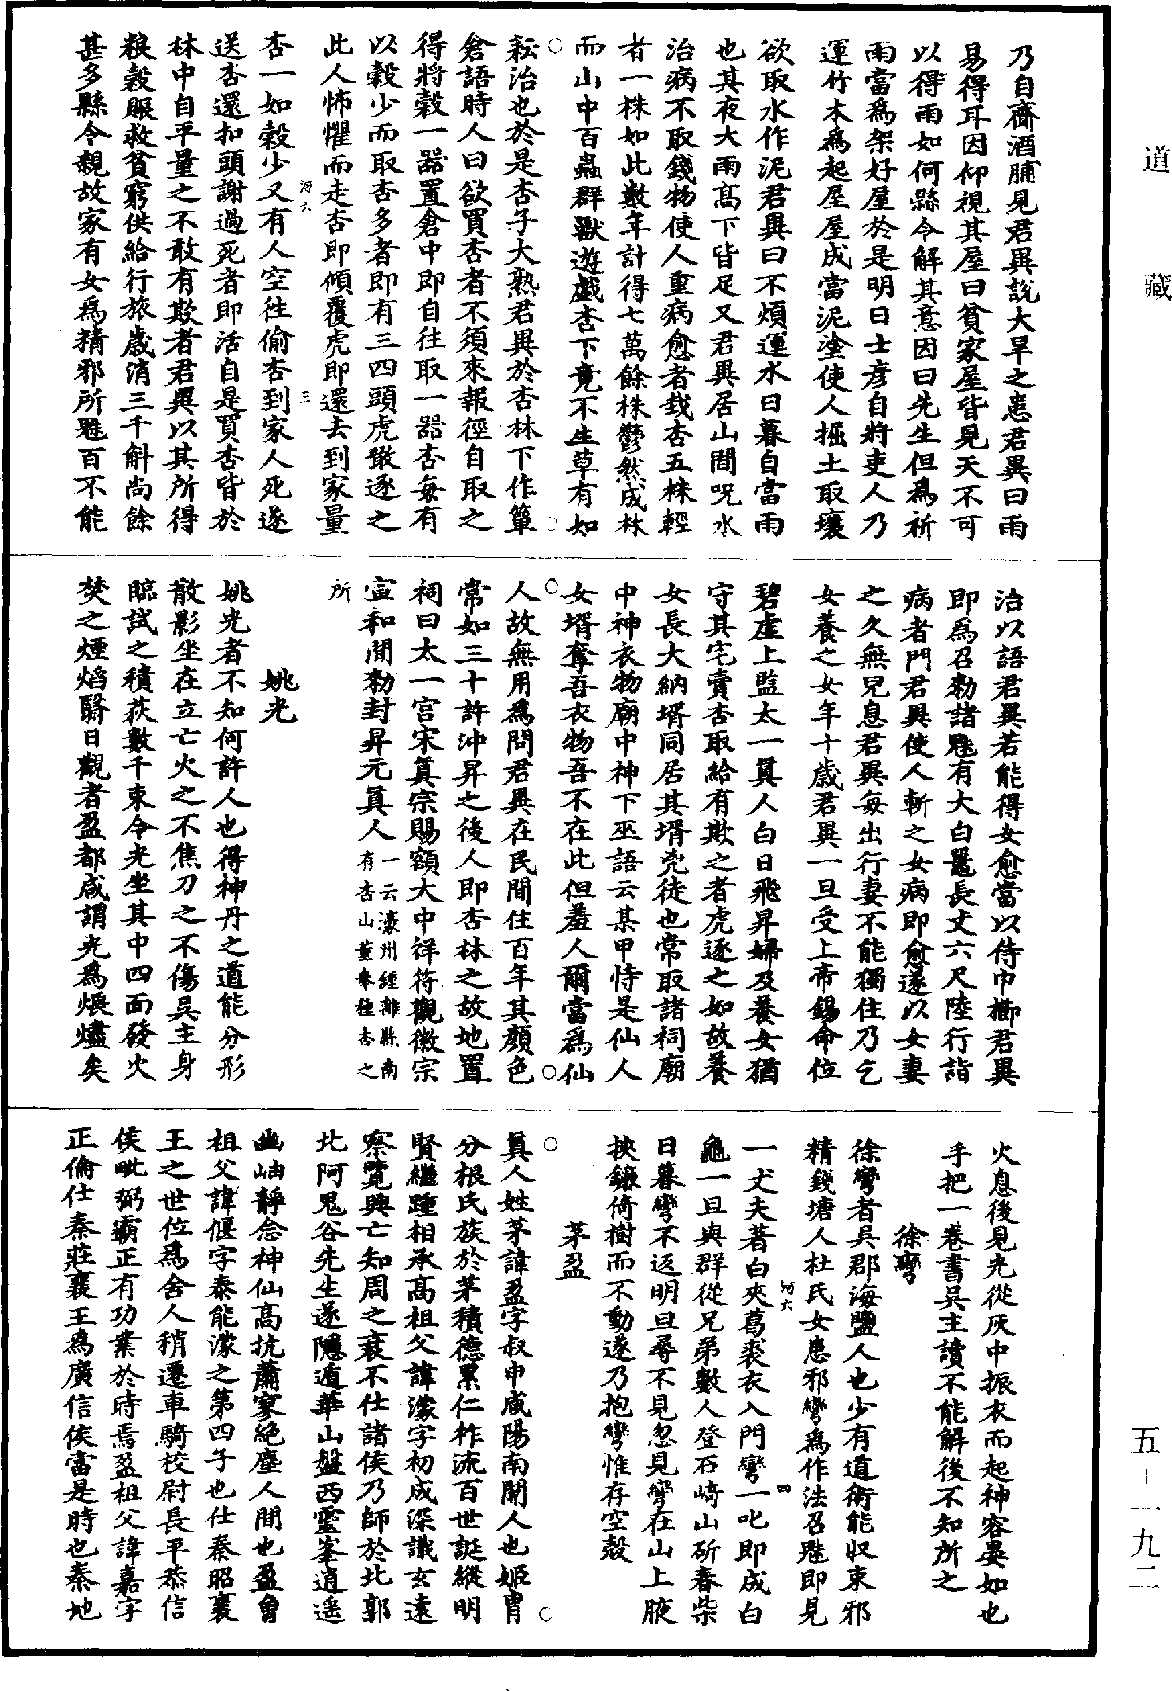 道藏
乃自齎酒脯見君異說大旱之恚君異曰雨
易得耳因仰視其屋曰貧家屋皆見天不可
以得雨如何縣令解其意因曰先生但為祈
雨當為架好屋於是明日士彥自將吏人乃
運竹木為起屋屋成當泥塗使人掘土取壤
欲取水作泥君異曰不煩運水日暮自當雨
也其夜大雨高下皆足又君異居山間呪水
治病不取錢物使人重病愈者栽杏五株輕
者一株如此數年計得七萬餘株鬱然成林
而山中百蟲群獸遊戲杏下竟不生草有如
耘治也於是杏子大熟君異於杏林下作簞
倉語時人曰欲買杏者不須來報徑自取之
得將穀一器置倉中即自往取一器杏每有
以穀少而取杏多者即有三四頭虎噉逐之
此人怖懼而走杏即傾覆虎即還去到家量
杏一如穀少又有人空往偷杏到家人死遂
河六 三
送杏還扣頭謝過死者即活自是買杏皆於
林中自平量之不敢有欺者君異以其所得
粮穀賑救貧窮供給行旅歲消三千斛尚餘
甚多縣令親故家有女為精邪所魅百不能
治以語君異若能得女愈當以侍巾櫛君異
即為召勑諸魅有大白鼉長丈六尺陸行詣
病者門君異使人斬之女病即愈遂以女妻
之久無兒息君異每出行妻不能獨住乃乞
女養之女年十歲君異一旦受上帝錫命位
碧虛上監太一真人白日飛昇婦及養女猶
守其宅賣杏取給有欺之者虎逐之如故養
女長大納壻同居其壻兇徒也常取諸祠廟
中神衣物廟中神下巫語云某甲恃是仙人
女壻奪吾衣物吾不在此但羞人爾當為仙
人故無用為問君異在民間住百年其顏色
常如三十許沖昇之後人即杏林之故地置
祠曰太一宮宋真宗賜額大中祥符觀徽宗
宣和間勑封昇元真人一云濠州鍾離縣南
有杏山董奉種杏之
所
姚光
姚光者不知何許人也得神丹之道能分形
散影坐在立亡火之不焦刀之不傷吳主身
臨試之積荻數千束令光坐其中四面發火
焚之煙焰翳日觀者盈都咸謂光為煨燼矣
火息後見光從灰中振衣而起神容晏如也
手把一卷書吳主讀不能解後不知所之
徐彎
徐彎者吳郡海鹽人也少有道術能收束邪
精錢塘人杜氏女患邪彎為作法召魅即見
河六 四
一丈夫著白夾葛裘衣入門彎一叱即成白
龜一旦與群從兄弟數人登石崎山斫春柴
日暮彎不返明旦尋不見忽見彎在山上腋
挾鎌倚樹而不動遂乃抱彎惟存空殼
茅盈
真人姓茅諱盈字叔申咸陽南關人也姬胄
分根氏族於茅積德累仁祚流百世誕縱明
賢繼踵相承高祖父諱濛字初成深識玄遠
察覽興亡知周之衰不仕諸侯乃師於北郭
北阿鬼谷先生遂隱遁華山盤西靈峯逍遥
幽岫靜念神仙高抗蕭寥絕塵人間也盈曾
祖父諱偃字泰能濛之第四子也仕秦昭襄
王之世位為舍人稍遷車騎校尉長平恭信
侯毗弼霸正有功業於時焉盈祖父諱嘉字
正倫仕秦莊襄王為廣信侯當是時也秦地
五-一九二